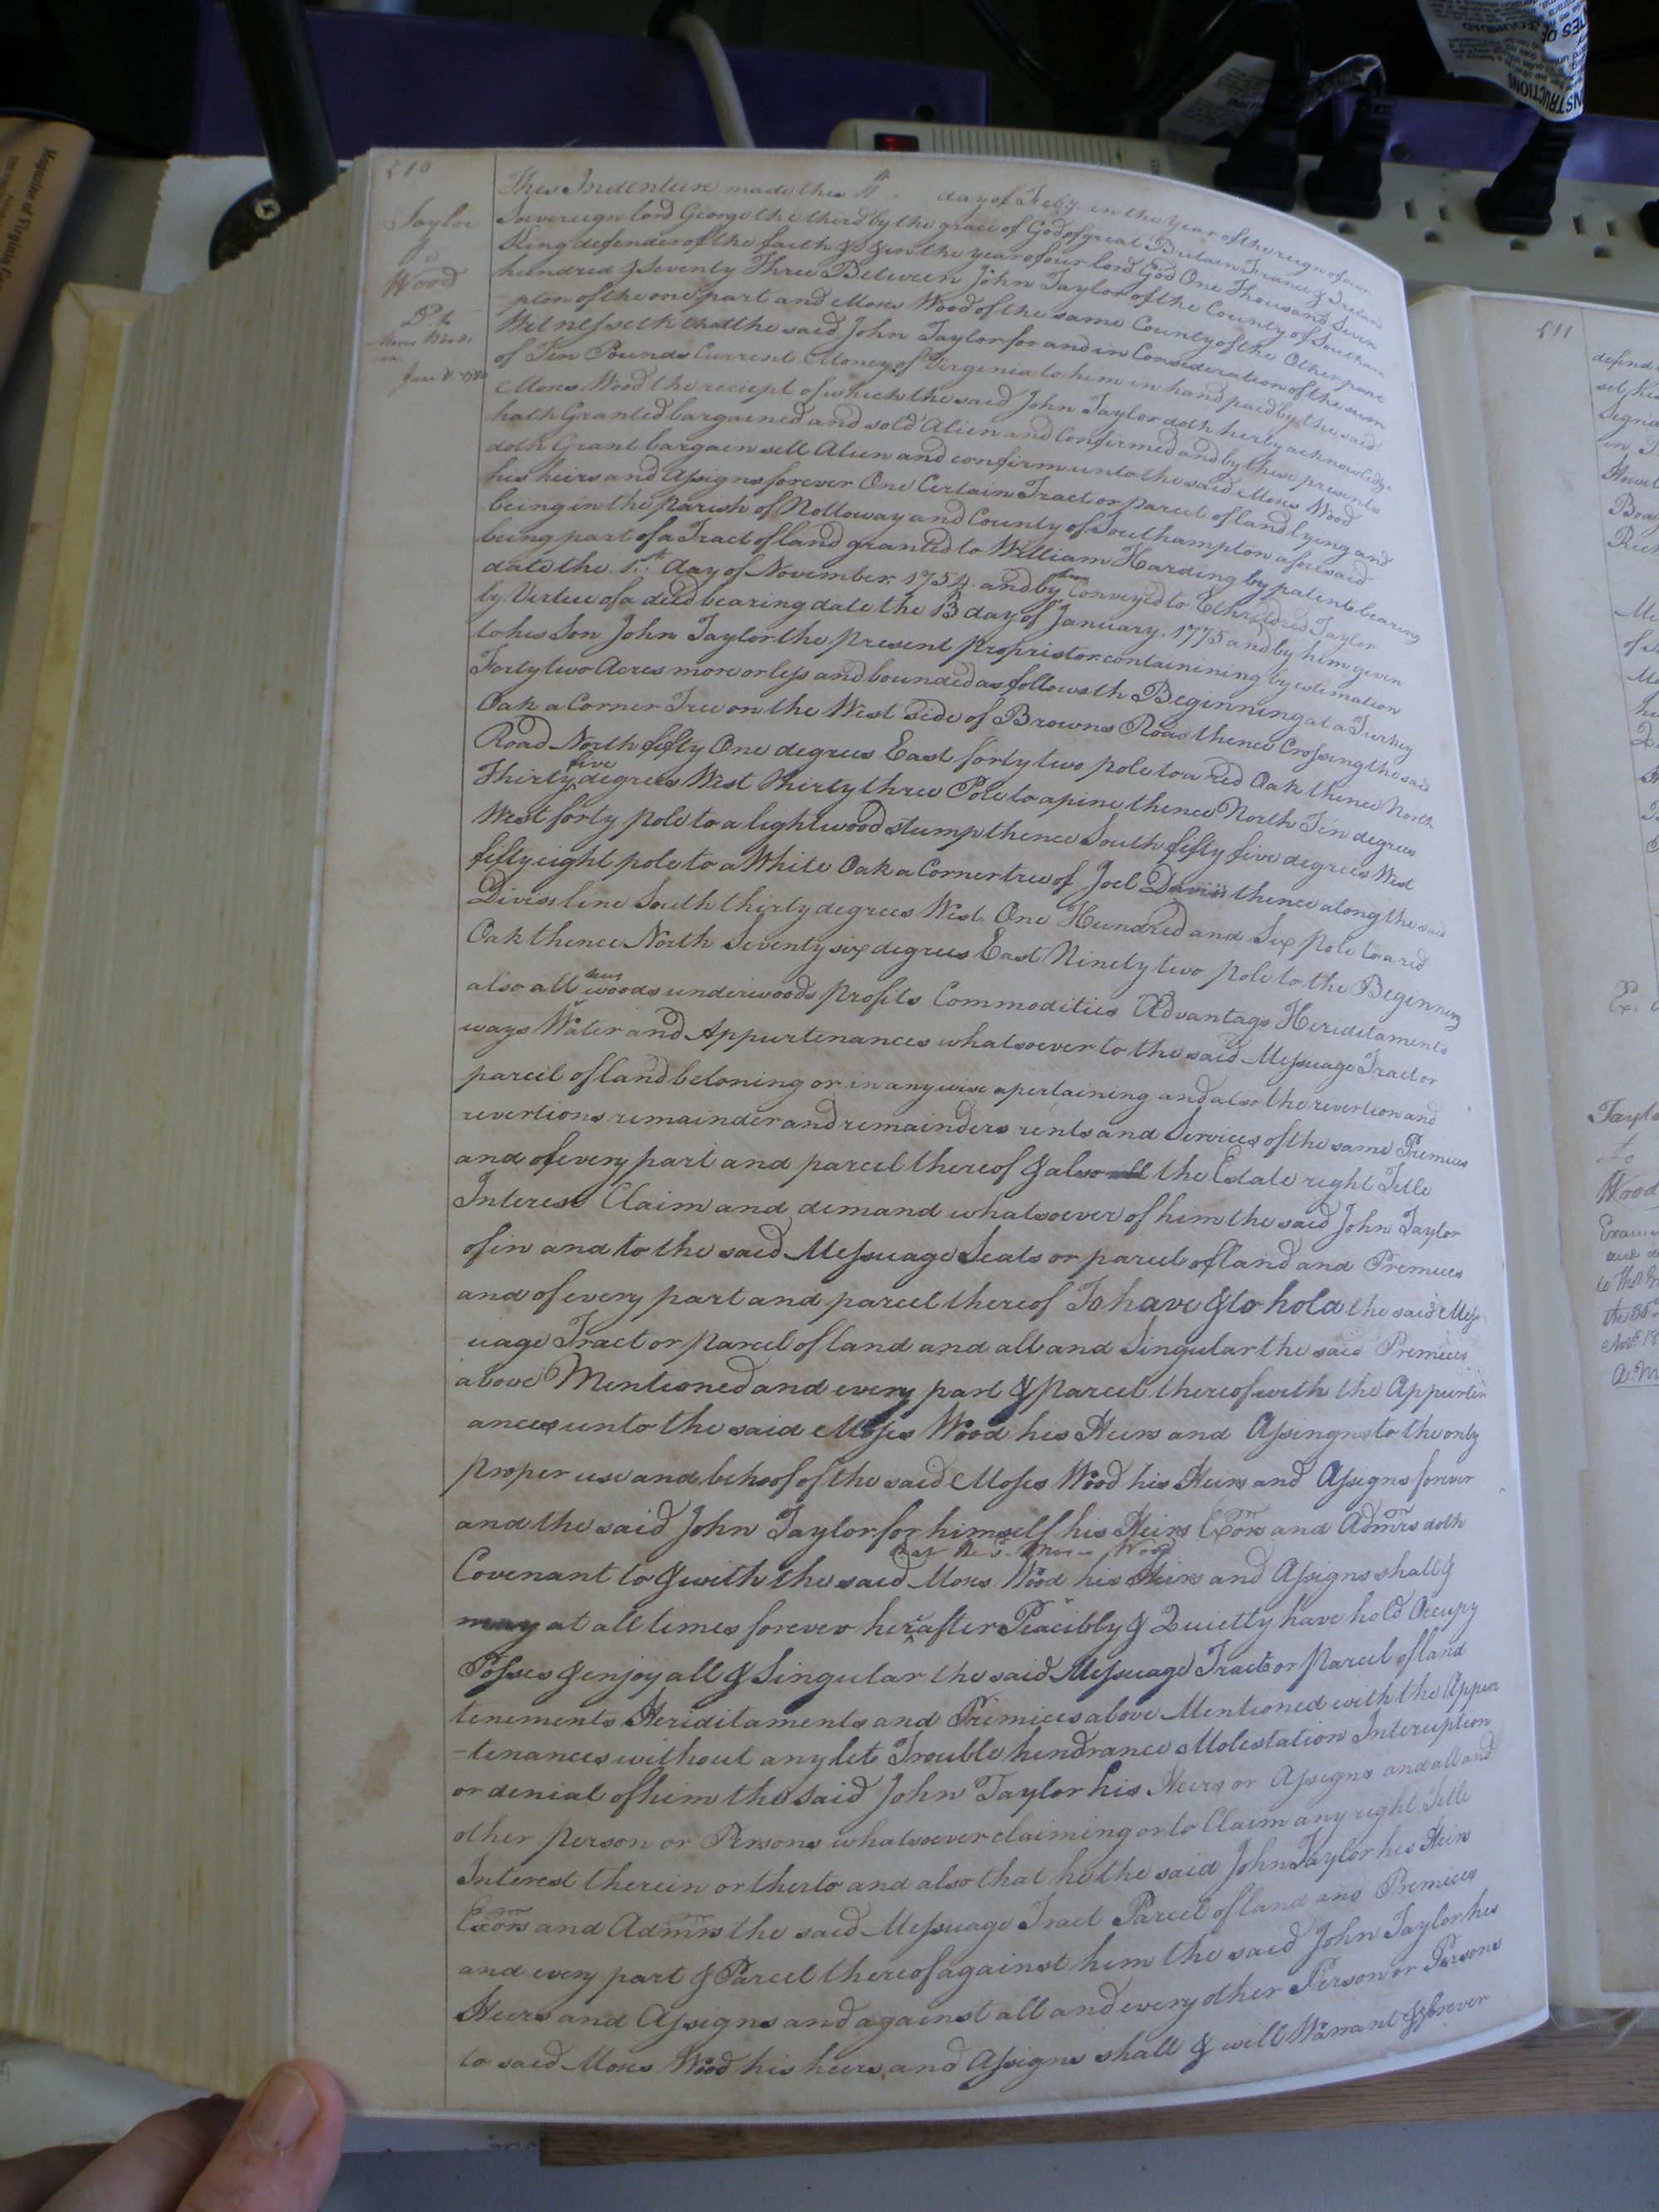 510
Taylor
to
Wood
This Indenture made the day of Feby in the Year of the reign of our
Sovereign lord George the third by the grace of God of great Britain France & Ireland
King defender of the faith &c & in the year of our lord God One Thousand Seven
hundred & Seventy Three Between John Taylor of the County of Southam
-pton of the one part and Moses Wood of the same County of the Other part
Witnesseth that the said John Taylor for and in Consideration of the sum
of Ten Pounds Current Money of Virginia to him in hand paid by the said
Moses Wood the reciept of which the said John Taylor doth herby acknowledge
hath Granted bargained and sold Alien and Confirmed and by these presents
doth Grant bargain sell Alien and confirm unto the said Moses Wood
his heirs and Assigns forever One Certain Tract or parcel of land lying and
being in the Parish of Nottoway and County of Southampton aforesaid
being part of a Tract of land granted to William Harding by patent bearing
date the day of November 1754. and by him Conveyed to Etheldred Taylor
by Vertue of a deed bearing date the 13 day of January. 1775 and by him given
to his Son John Taylor the present Propristor containining by estimation
Forty two Acres more or less and bounded as followeth Beginning at a Turkey
Oak a Corner Tree on the West Side of Browns Road thence Crossing the said
Road North fifty One degrees East forty two pole to a red Oak thence North
Thirty five degrees West Thirty three Pole to a pine thence North Ten degrees
West forty pole to a lightwood stump thence South fifty five degrees West
fifty eight pole to a White Oak a Corner tree of Joel Davis thence along the said
Diviss line South thirty degrees West One Hundred and Six pole to a red
Oak thence North Seventy six degrees East Ninety two pole to the Beginning
also all woods underwoods Profits Commodities Advantags Heriditaments
ways Water and Appurtenances whatsoever to the said Messuage Tract or
parcel of land beloning or in any wise apertaining and also the revertion and
revertions remainder and remainders rents and Services of the same Premices
and of every part and parcel thereof & also all the Estate right Title
Interest Claim and demand whatsoever of him the said John Taylor
of in and to the said Messuage Seats or parcel of land and Premices
and of every part and parcel thereof To have & to hold the said Mess
uage Tract or Parcel of land and all and Singular the said Premices
above Mentioned and every part & Parcel thereof with the Appurten
ances unto the said Moses Wood his Heirs and Assingns to the only
proper use and behoof of the said Moses Wood his Heirs and Assigns forever
and the said John Taylor for himself his Heirs Exors and Admrs doth
Covenant to & with the said Moses Wood that the sd Moses Wood his Heirs and Assigns shall &
may at all times forever herafter Peacibly & Quietty have hold Occupy
Posses & enjoy all & Singular the said Messuage Tract or Parcel of land
tenements Heriditaments and Primices above Mentioned with the Appur
=tenances without any lets Trouble hendrance Molestation Interuption
or denial of him the said John Taylor his Heirs or Assigns and all and
other Person or Persons whatsoever claiming or to Claim any right Title
Interest therein or therto and also that he the said John Taylor his Heirs
Exors and Admrs the said Messuage Tract Parcel of land and Premices
and every part & Parcel thereof against him the said John Taylor his
Heirs and Assigns and against all and every other Person or Persons
to said Moses Wood his heirs and Assigns shall & will Warrant & forever
511
Taylo
to
Wood
INSTRUCTIONS
Magazine of Virginia